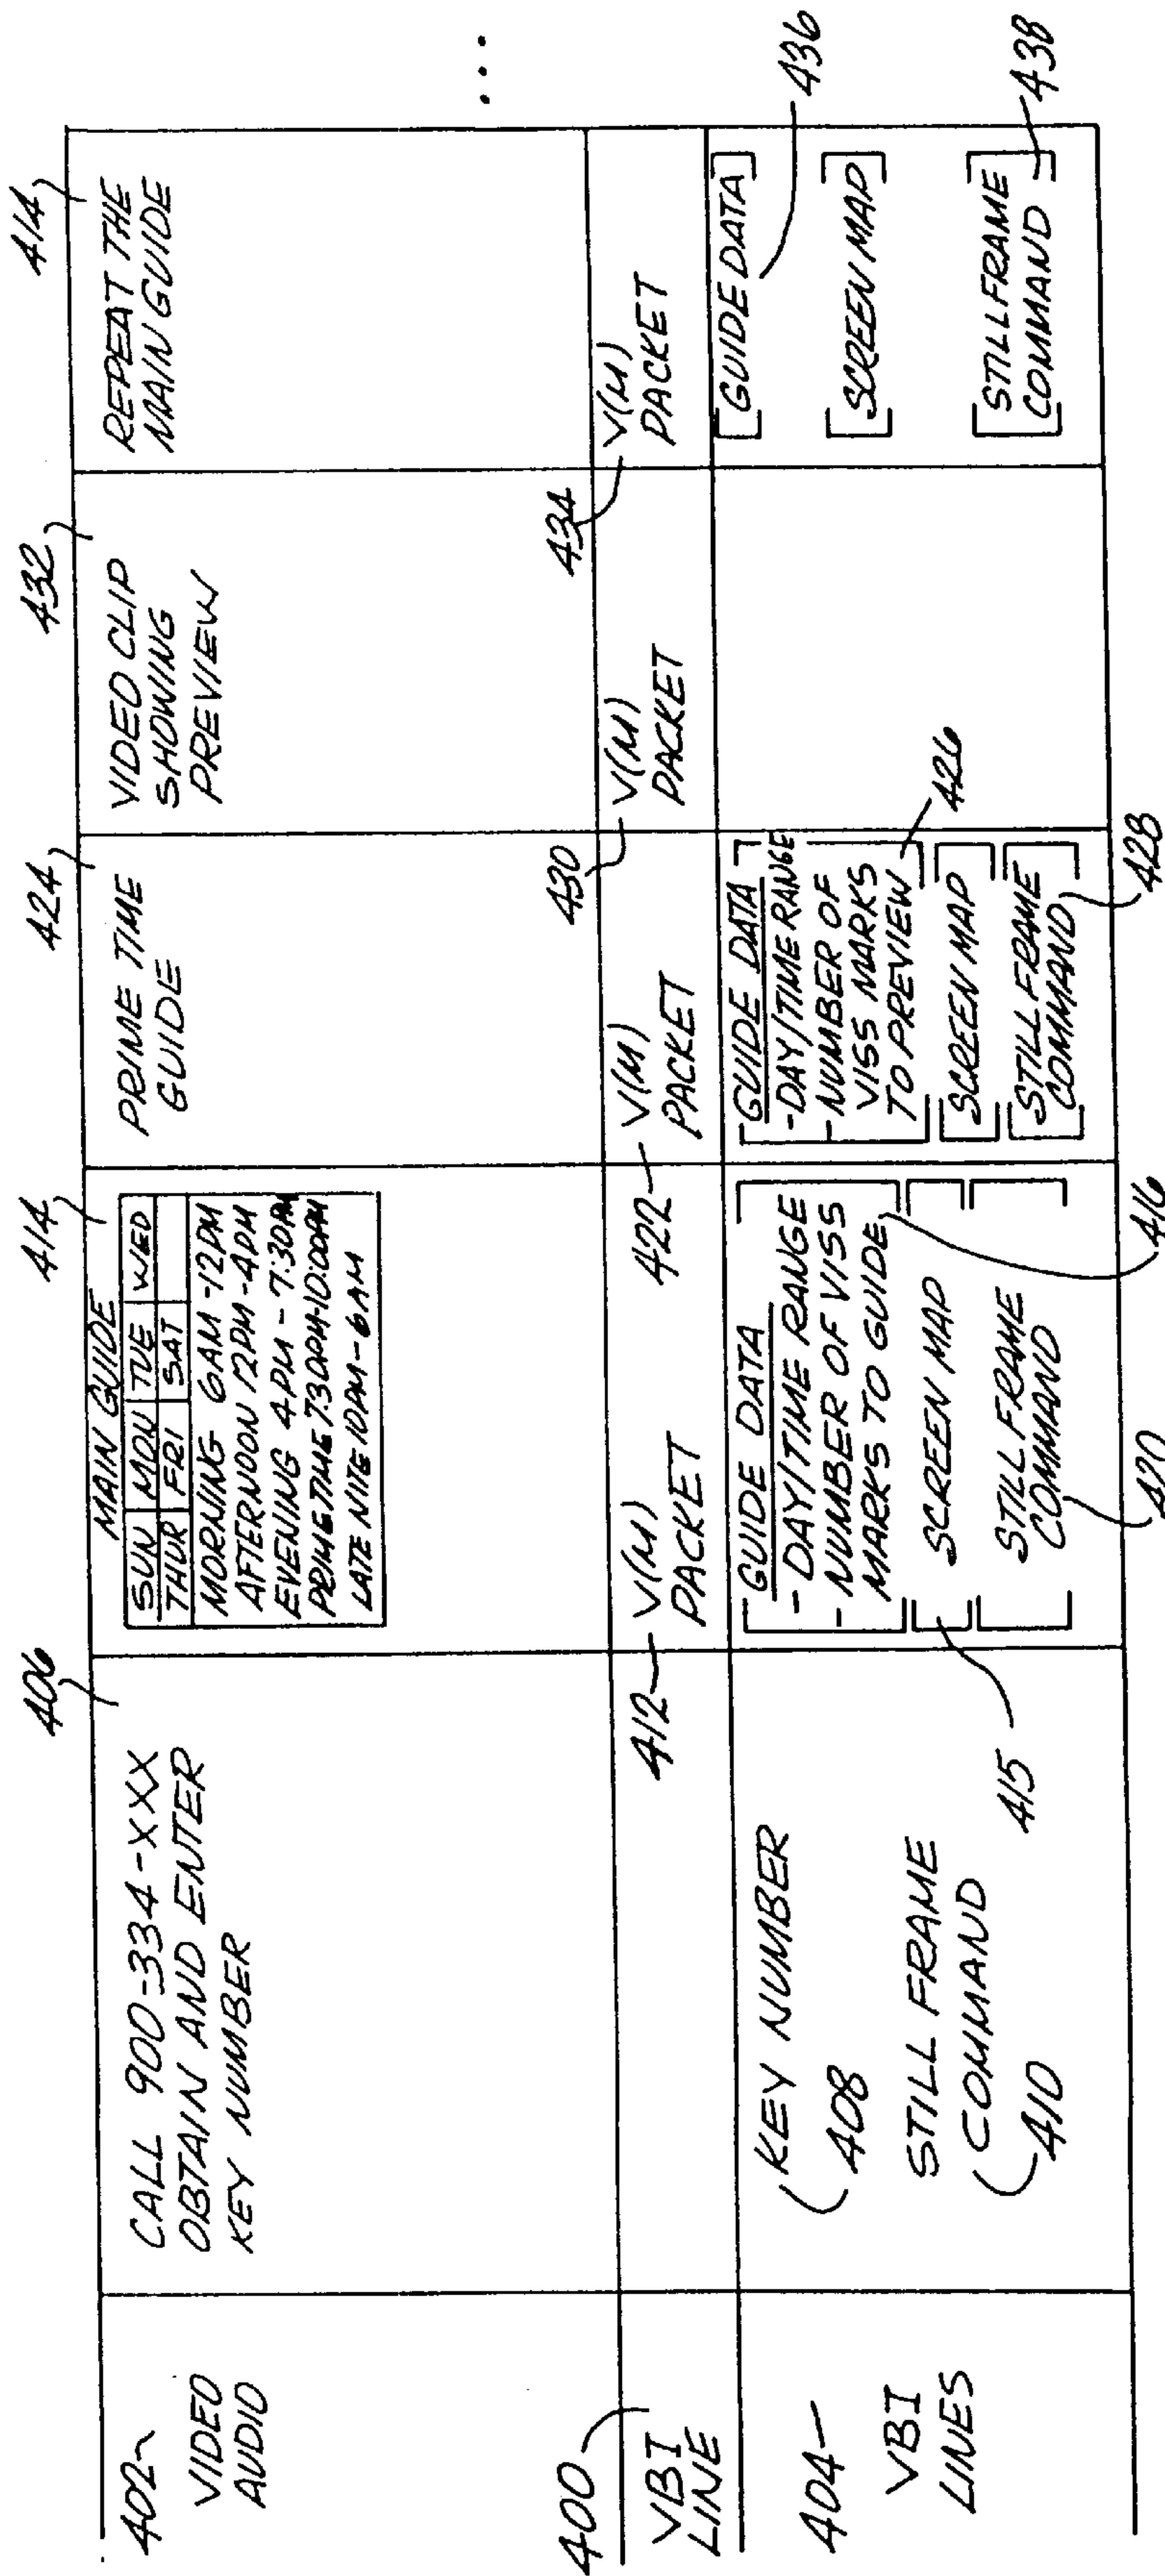 402
VIDEO
AUDIO
400
VBI
LINE
404
VBI
LINES
406
CALL 900-334-XXX
OBTAIN AND ENTER
KEY NUMBER
KEY NUMBER
408
STILL FRAME
COMMAND
410
414
MAIN GUIDE
SUN MON TUE WED
THUR FRI SAT
MORNING 6AM-12PM
AFTERNOON 12PM-4PM
EVENING 4PM-7:30PM
PRIME TIME 730PM-10:00PM
LATE NITE 10PM-6AM
412 V(M)
PACKET
GUIDE DATA
- DAY/TIME RANGE
- NUMBER OF VISS
MARKS TO GUIDE
416
SCREEN MAP
415
STILL FRAME
COMMAND
420
424
PRIME TIME
GUIDE
422 V(M)
PACKET
GUIDE DATA
- DAY/TIME RANGE
- NUMBER OF
VISS MARKS
TO PREVIEW
426
SCREEN MAP
STILL FRAME
COMMAND
428
432
VIDEO CLIP
SHOWING
PREVIEW
430 V(M)
PACKET
414
REPEAT THE
MAIN GUIDE
...
434 V(M)
PACKET
GUIDE DATA
436
SCREEN MAP
STILL FRAME
COMMAND
438